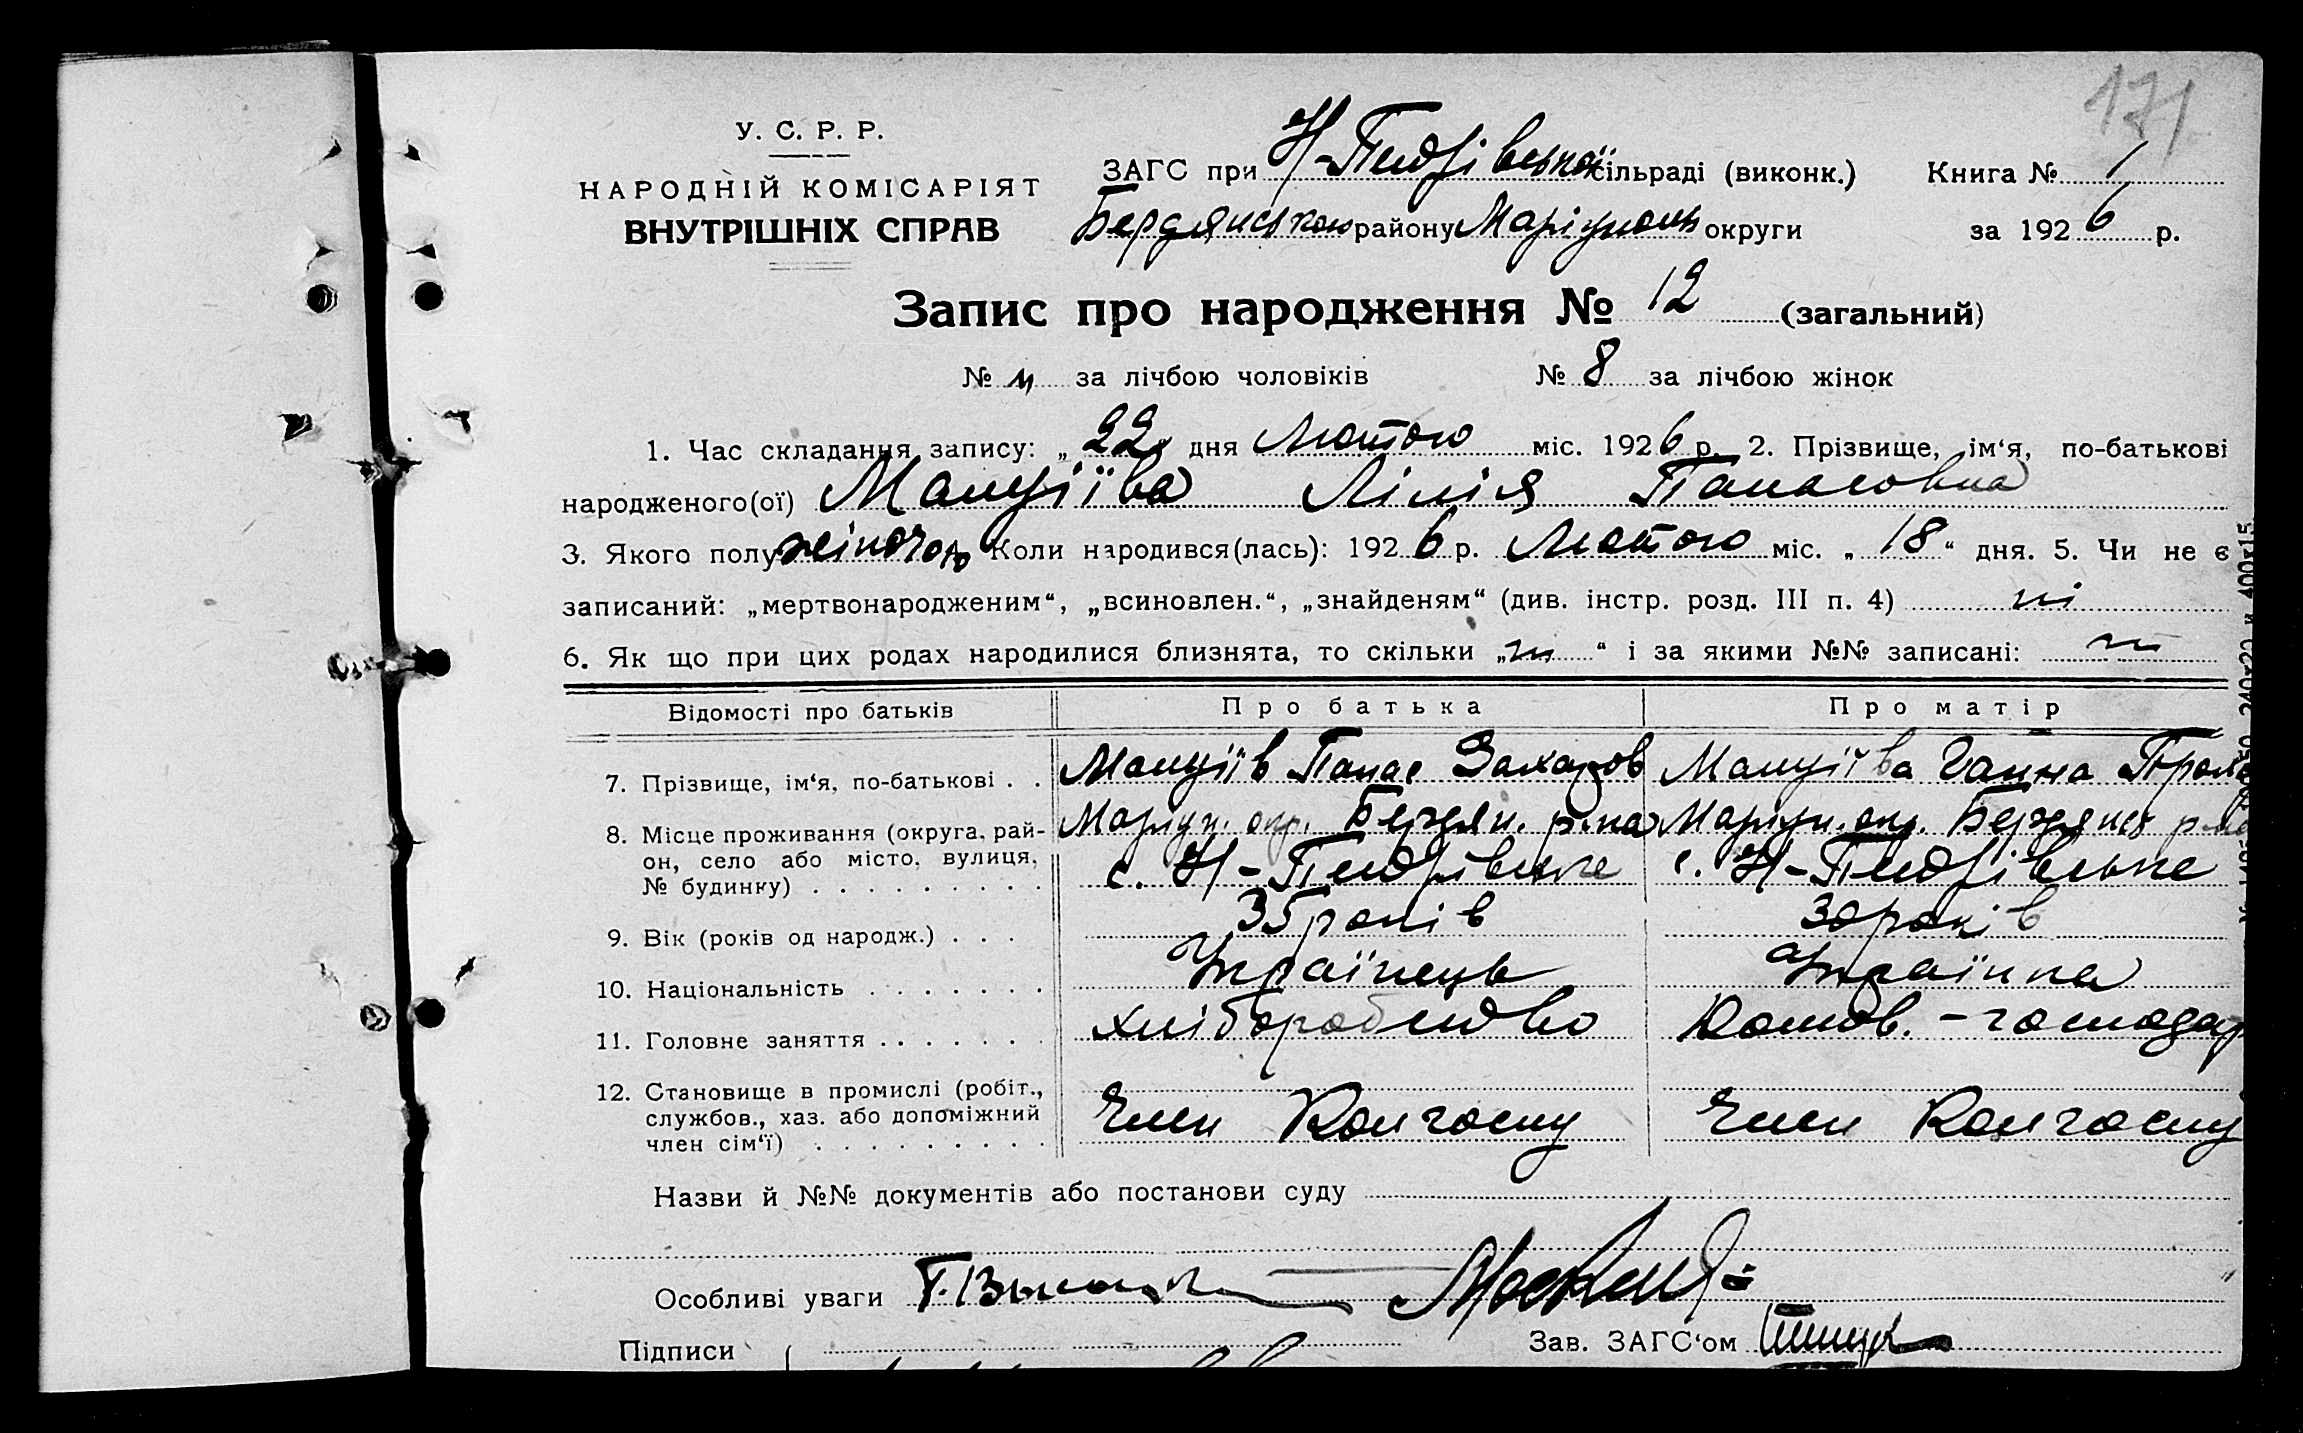 171
У. С. Р. Р.
НАРОДНІЙ КОМІСАРІЯТ
ВНУТРІШНІХ СПРАВ
ЗАГС при Н-Петрівській сільраді (виконк.) Книга № 1
Бердянського району Маріупольс округи за 1926 р.
Запис про народження № 12 (загальний)
№ 4 за лічбою чоловіків № 8 за лічбою жінок
1. Час складання запису: „ 22 дня Лютого міс. 1926 р. 2. Прізвище, ім‘я, по-батькові
народженого(ої) Мануіїва Лілія Панасовна
3. Якого полу жіночого Коли народився(лась): 1926 р. Лютого міс. „ 18 “ дня. 5. Чи не є
записаний: „мертвонародженим“, „всиновлен.“, „знайденям“ (див. інстр. розд. III п. 4) ні
6. Як що при цих родах народилися близнята, то скільки „ ні “ і за якими №№ записані: ні
Відомості про батьків Про батька Про матір
7. Прізвище, ім‘я, по-батькові . . Мануіїв Панас Захаров Мануіїва Ганна
8. Місце проживання (округа, рай- Маріуп. окр. Бердян. р-на Маріуп. окр. Бердянс р-на
он, село або місто, вулиця, с. Н-Петрівське с. Н-Петрівське
№ будинку) . . . . . . . . .
9. Вік (років од народж.) . . . 35 років 30 років
10. Національність . . . . . . . Українець Українка
11. Головне заняття . . . . . . . хліборобство Домов. - господар
12. Становище в промислі (робіт.,
службов., хаз. або допоміжний Член Колгоспу Член Колгоспу
член сім‘ї) . . . . . . . . .
Назви й №№ документів або постанови суду
Особливі уваги
Підписи Зав. ЗАГС‘ом